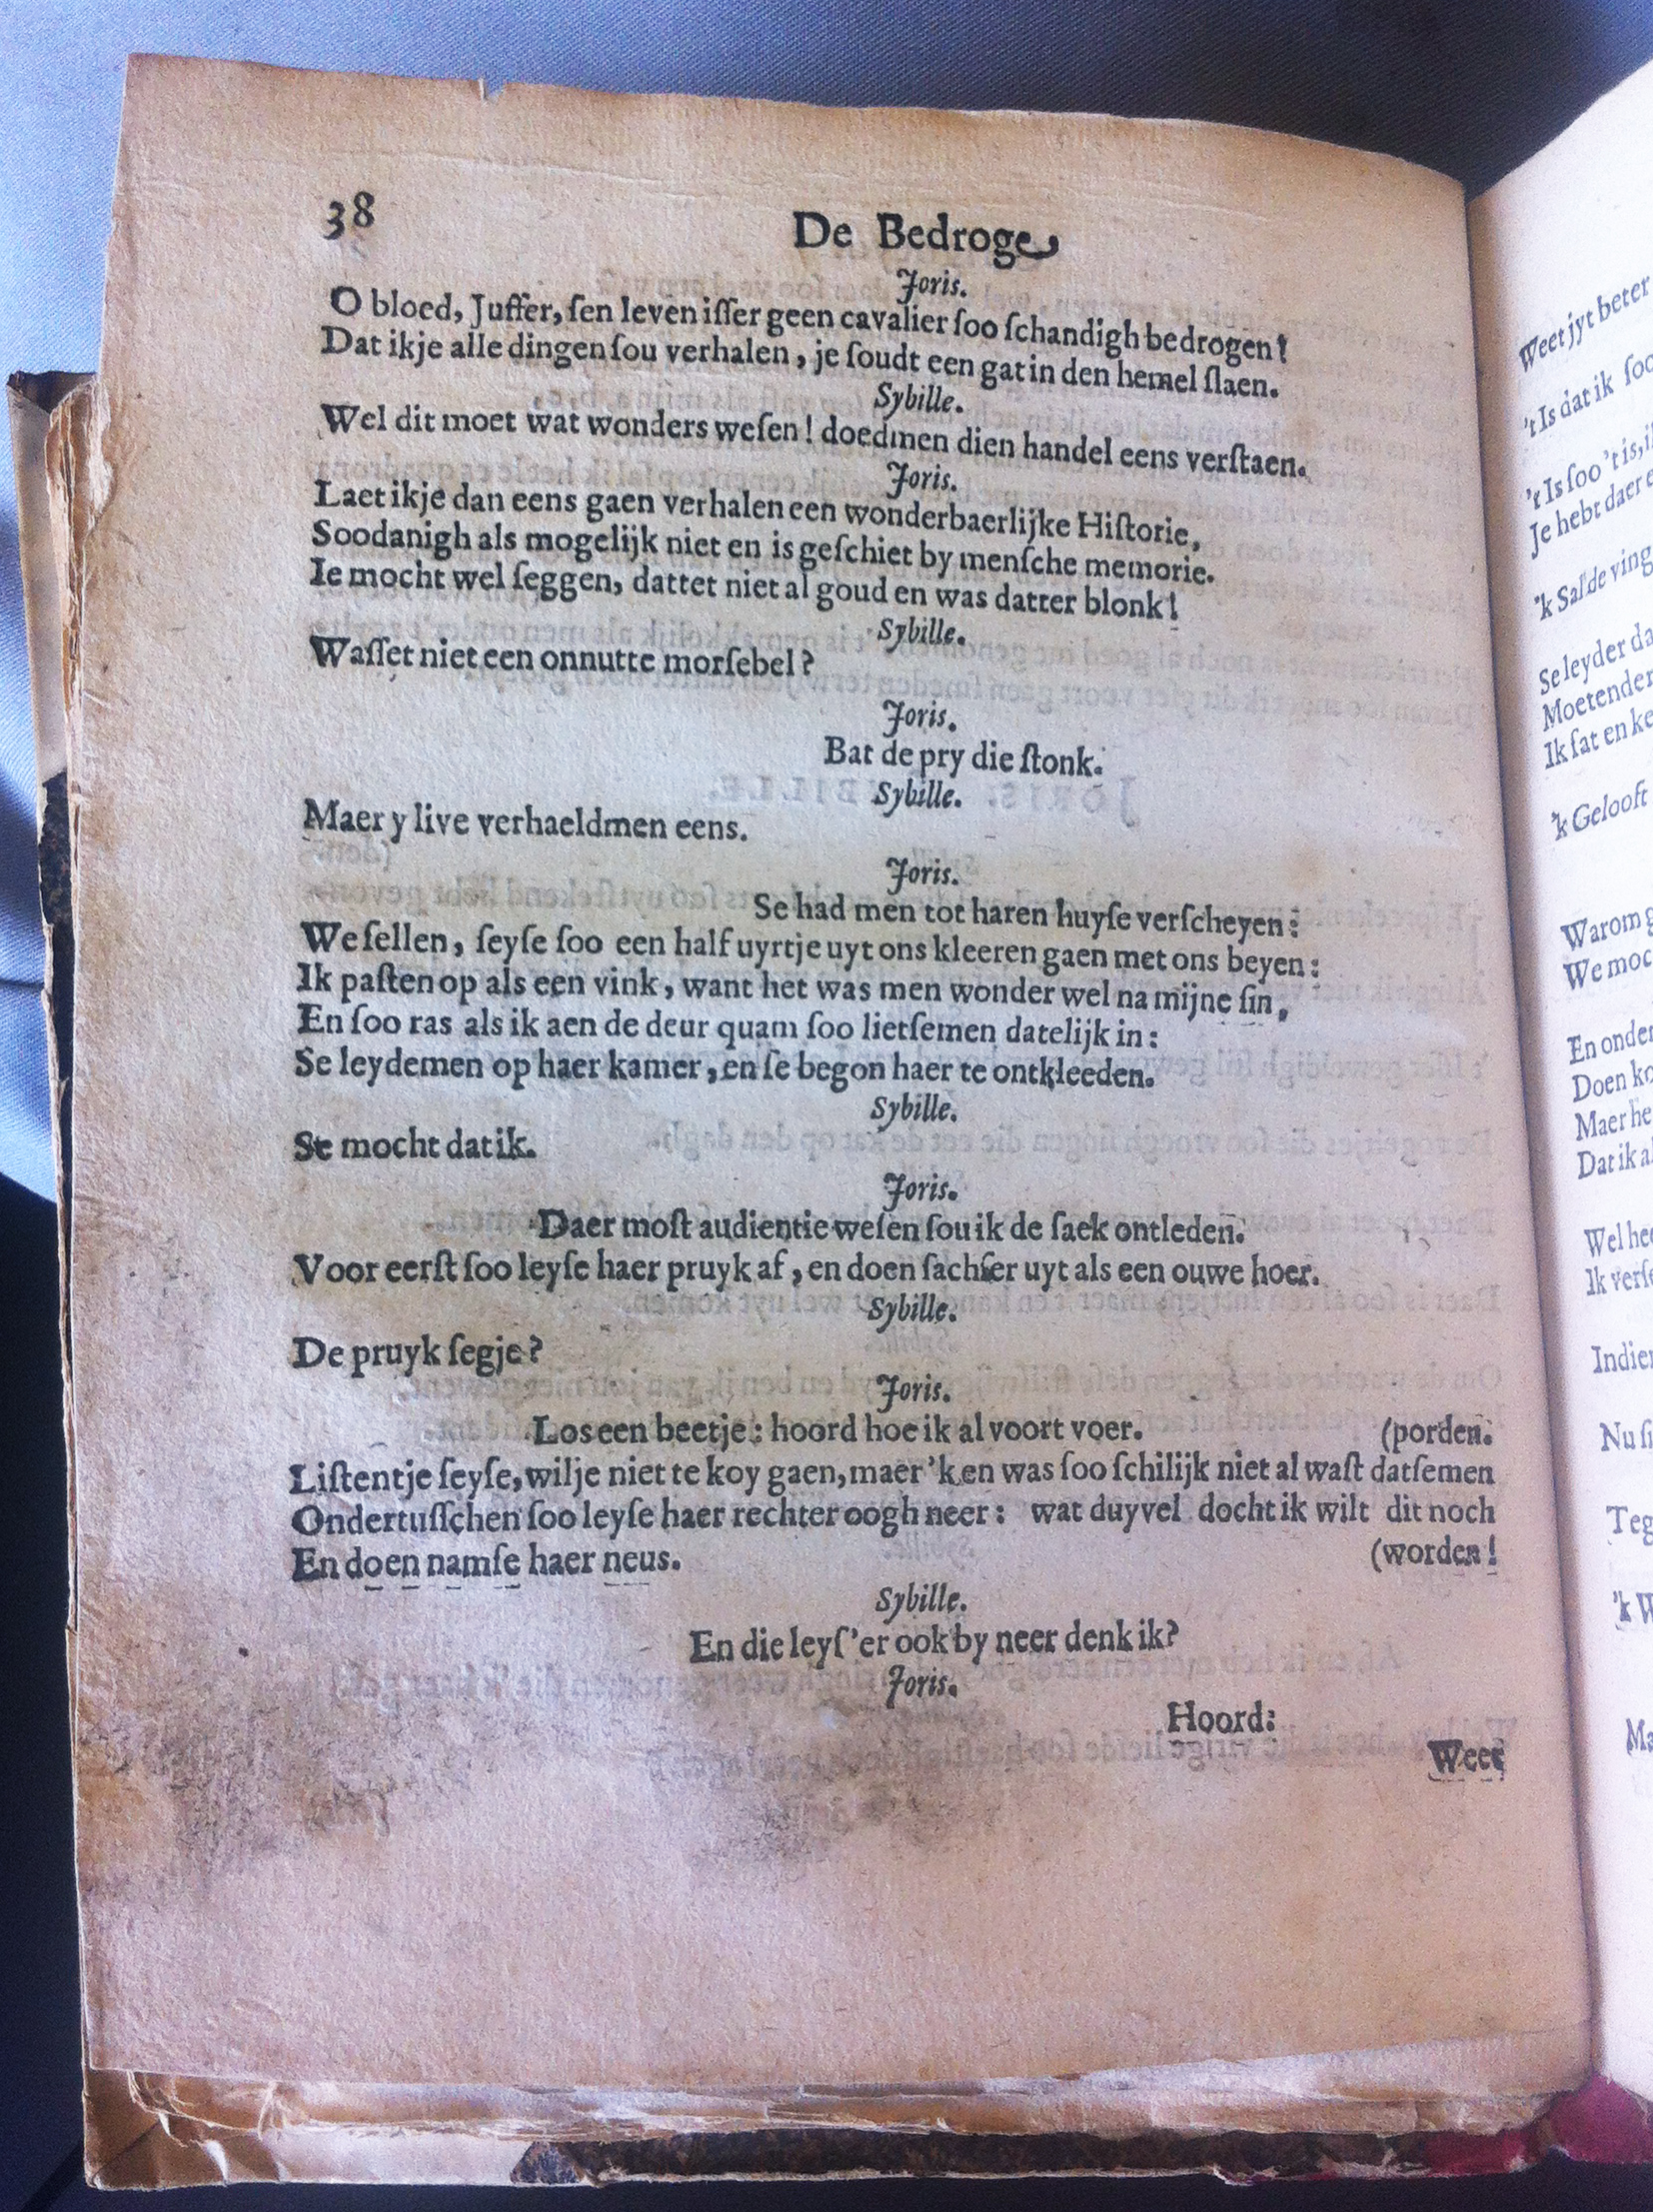 38
De Bedroge
Joris.
O bloed, Juffer, ſen leven iſſer geen cavalier ſoo ſchandigh bedrogen!
Dat ikje alle dingen ſou verhalen, je ſoudt een gat in den hemel ſlaen.
Sybille.
Wel dit moet wat wonders weſen! doedmen dien handel eens verſtaen.
Joris.
Laet ikje dan eens gaen verhalen een wonderbaerlijke Hiſtorie,
Soodanigh als mogelijk niet en is geſchiet by menſche memorie.
Ie mocht wel ſeggen, dattet niet al goud en was datter blonk!
Sybille.
Waſſet niet een onnutte morſebel?
Joris.
Bat de pry die ſtonk.
Sybille.
Maer y live verhaeldmen eens.
Joris.
Se had men tot haren huyſe verſcheyen:
We ſellen, ſeyſe ſoo een half uyrtje uyt ons kleeren gaen met ons beyen:
Ik paſten op als een vink, want het was men wonder wel na mijne ſin,
En ſoo ras als ik aen de deur quam ſoo lietſemen datelijk in:
Se leydemen op haer kamer, en ſe begon haer te ontkleeden.
Sybille.
Se mocht dat ik.
Joris.
Daer moſt audientie weſen ſou ik de ſaek ontleden.
Voor eerſt ſoo leyſe haer pruyk af, en doen ſachſer uyt als een ouwe hoer.
Sybille.
De pruyk ſegje?
Joris.
Los een beetje: hoord hoe ik al voort voer. (porden.
Liſtentje ſeyſe, wilje niet te koy gaen, maer 'k en was ſoo ſchilijk niet al waſt datſemen
Ondertuſſchen ſoo leyſe haer rechter oogh neer: wat duyvel docht ik wilt dit noch
En doen namſe haer neus. (worden!
Sybille.
En die leyſ'er ook by neer denk ik?
Joris.
Hoord:
Weet
Weet jyt beter
't Is dat ik ſoo
't Is ſoo 't is,
Je hebt daer
'k Sal de ving
Se leyder da
Moetender
Ik ſat en ke
'k Gelooft
Warom g
We moc
En onder
Doen ko
Maer he
Dat ik al
Wel hee
Ik verſe
Indien
Nu ſi
Teg
'k W
Ma